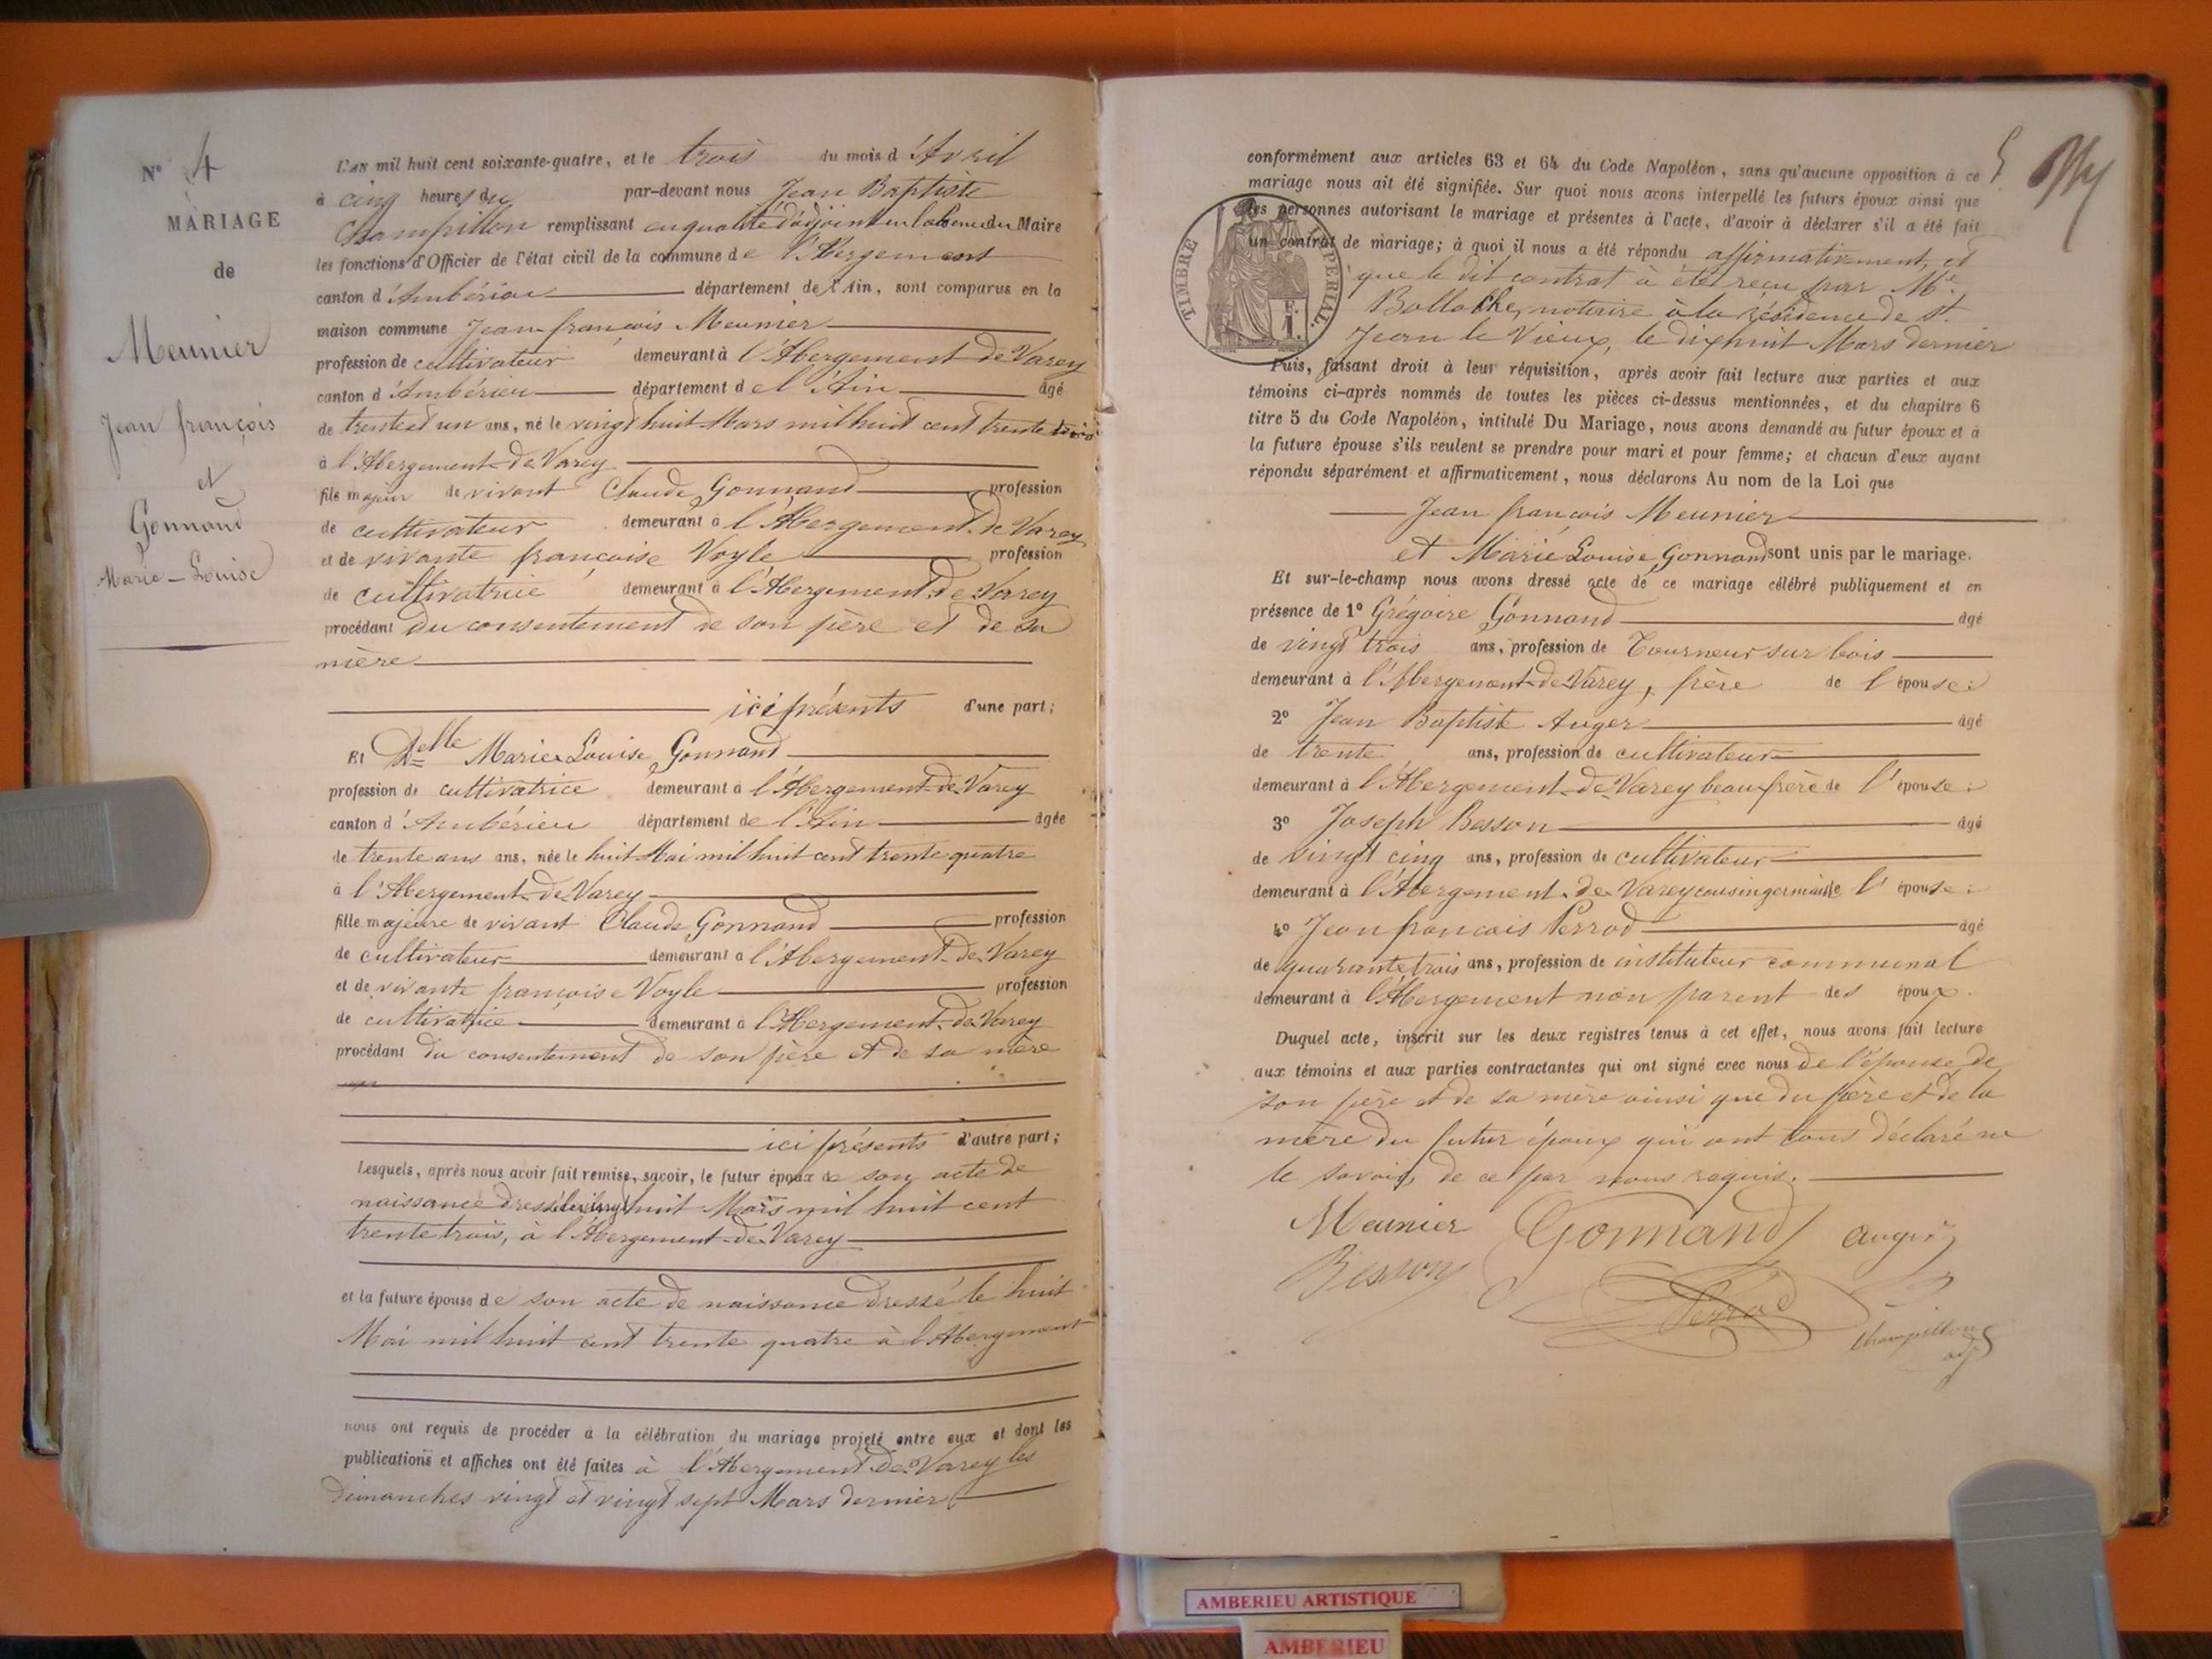 N° 4
MARIAGE
de
Meunier
Jean françois
et
Gonnand
Marie-Louise
L'AN mil huit cent soixante-quatre, et le trois du mois d'Avril
à cinq heures du par-devant nous Jean Baptiste
Champillon remplissant en qualité d'adjoint en l'absence du Maire
les fonctions d'Officier de l'état civil de la commune de l'Abergement
canton d'Ambérieu département de l'Ain, sont comparus en la
maison commune Jean-françois Meunier
profession de cultivateur demeurant à l'Abergement-de-Varey
canton d'Ambérieu département de l'Ain âgé
de trente et un ans, né le vingt huit Mars mil huit cent trente trois
à l'Abergement-de-Varey
fils majeur de vivant Claude Gonnand profession
de cultivateur demeurant à l'Abergement-de-Varey
et de vivante françoise Voyle profession
de cultivatrice demeurant à l'Abergement-de-Varey
procédant du consentement de son père et de sa
mère
ici présents d'une part;
Et Delle Marie Louise Gonnand
profession de cultivatrice demeurant à l'Abergement-de-Varey
canton d'Ambérieu département de l'Ain âgée
de trente ans ans, née le huit Mai mil huit cent trente quatre
à l'Abergement-de-Varey
fille majeure de vivant Claude Gonnand profession
de cultivateur demeurant à l'Abergement-de-Varey
et de vivante françoise Voyle profession
de cultivatrice demeurant à l'Abergement-de-Varey
procédant du consentement de son père et de sa mère
ici présents d'autre part;
Lesquels, après nous avoir fait remise, savoir, le futur époux de son acte de
naissance dressé le vingt huit Mars mil huit cent
trente trois, à l'Abergement-de-Varey
et la future épouse de son acte de naissance dressé le huit
Mai mil huit cent trente quatre à l'Abergement
nous ont requis de procéder à la célébration du mariage projeté entre eux et dont les
publications et affiches ont été faites à l'Abergement-de-Varey les
dimanches vingt et vingt sept Mars dernier
conformément aux articles 63 et 64 du Code Napoléon, sans qu'aucune opposition à ce
mariage nous ait été signifiée. Sur quoi nous avons interpellé les futurs époux ainsi que
les personnes autorisant le mariage et présentes à l'acte, d'avoir à déclarer s'il a été fait
un contrat de mariage; à quoi il nous a été répondu affirmativement, et
que le dit contrat à été reçu par Me
Bollache, notaire à la résidence de St.
Jean le Vieux, le dix huit Mars dernier
TIMBRE IMPERIAL
1 F.
Puis, faisant droit à leur réquisition, après avoir fait lecture aux parties et aux
témoins ci-après nommés de toutes les pièces ci-dessus mentionnées, et du chapitre 6
titre 5 du Code Napoléon, intitulé Du Mariage, nous avons demandé au futur époux et à
la future épouse s'ils veulent se prendre pour mari et pour femme; et chacun d'eux ayant
répondu séparément et affirmativement, nous déclarons Au nom de la Loi que
Jean françois Meunier
et Marie Louise Gonnand sont unis par le mariage.
Et sur-le-champ nous avons dressé acte de ce mariage célébré publiquement et en
présence de 1° Grégoire Gonnand âgé
de vingt trois ans, profession de Tourneur sur bois
demeurant à l'Abergement-de-Varey, frère de l'épouse:
2° Jean Baptiste Auger âgé
de trente ans, profession de cultivateur
demeurant à l'Abergement-de-Varey beau frère de l'épouse:
3° Joseph Besson âgé
de vingt cinq ans, profession de cultivateur
demeurant à l'Abergement-de-Varey cousin germain de l'épouse:
4° Jean françois Perrod âgé
de quarante trois ans, profession de instituteur communal
demeurant à l'Abergement non parent des époux.
Duquel acte, inscrit sur les deux registres tenus à cet effet, nous avons fait lecture
aux témoins et aux parties contractantes qui ont signé avec nous de l'épouse, de
son père et de sa mère ainsi que du père et de la
mère du futur époux qui ont tous déclaré ne
le savoir, de ce par nous requis.
Meunier Gonnand auger
Besson Perrod
Champillon
adj
AMBERIEU ARTISTIQUE
AMBERIEU